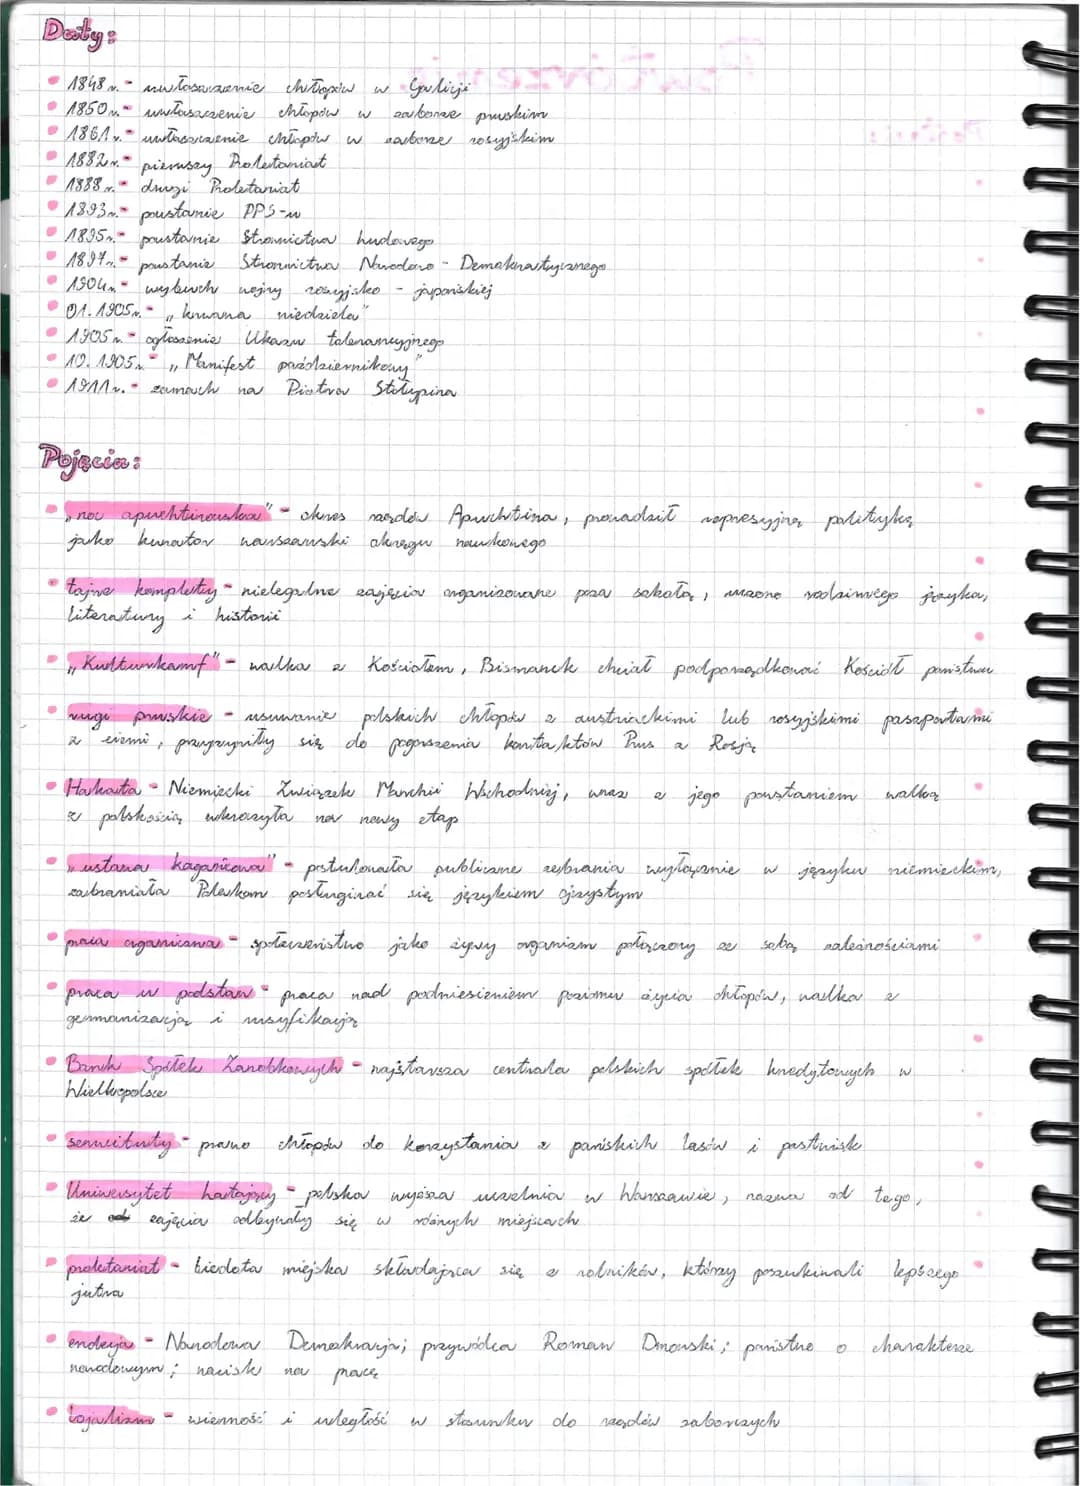 Daty:
• 1848 r. - uwłaszczenie chłopów w Galicji
• 1850 r. - uwłaszczenie chłopów w zaborze pruskim
• 1861 r. - uwłaszczenie chłopów w zaborze rosyjskim
• 1882 r. - pierwszy Proletariat
• 1888 r. - drugi Proletariat
• 1893 r. - powstanie PPS-u
• 1895 r. - powstanie Stronnictwa Ludowego
• 1897 r. - powstanie Stronnictwa Narodowo - Demokratycznego
• 1904 r. - wybuch wojny rosyjsko - japońskiej
• 01.1905 r. - „krwawa niedziela"
• 1905 r. - ogłoszenie Ukazu tolerancyjnego
• 10.1905 r. - „Manifest październikowy"
• 1911 r. - zamach na Piotra Stołypina
Pojęcia:
• „noc apuchtinowska" - okres rządów Apuchtina, prowadził represyjną politykę
jako kurator warszawski okręgu naukowego
• tajne komplety - nielegalne zajęcia organizowane poza szkołą, uczono rodzimego języka,
literatury i historii
• „Kulturkamf" - walka z Kościołem, Bismarck chciał podporządkować Kościół państwu
• rugi pruskie - usuwanie polskich chłopów z austriackimi lub rosyjskimi paszportami
z ziemi, przyczyniły się do pogorszenia kontaktów Prus z Rosją
• Hakata - Niemiecki Związek Marchii Wschodniej, wraz z jego powstaniem walka
z polskością wkroczyła na nowy etap
• „ustawa kagańcowa" - postulowała publiczne zebrania wyłącznie w języku niemieckim,
zabraniała Polakom posługiwać się językiem ojczystym
• praca organiczna - społeczeństwo jako żywy organizm połączony ze sobą zależnościami
• praca u podstaw - praca nad podniesieniem poziomu życia chłopów, walka z
germanizacją i rusyfikacją
• Bank Spółek Zarobkowych - najstarsza centrala polskich spółek kredytowych w
Wielkopolsce
• serwituty - prawo chłopów do korzystania z pańskich lasów i pastwisk
• Uniwersytet latający - polska wyższa uczelnia w Warszawie, nazwa od tego,
że zajęcia odbywały się w różnych miejscach
• proletariat - biedota miejska składająca się z rolników, którzy poszukiwali lepszego
jutra
• endecja - Narodowa Demokracja; przywódca Roman Dmowski; państwo o charakterze
narodowym; nacisk na pracę
• lojalizm - wierność i uległość w stosunku do rządów zaborczych